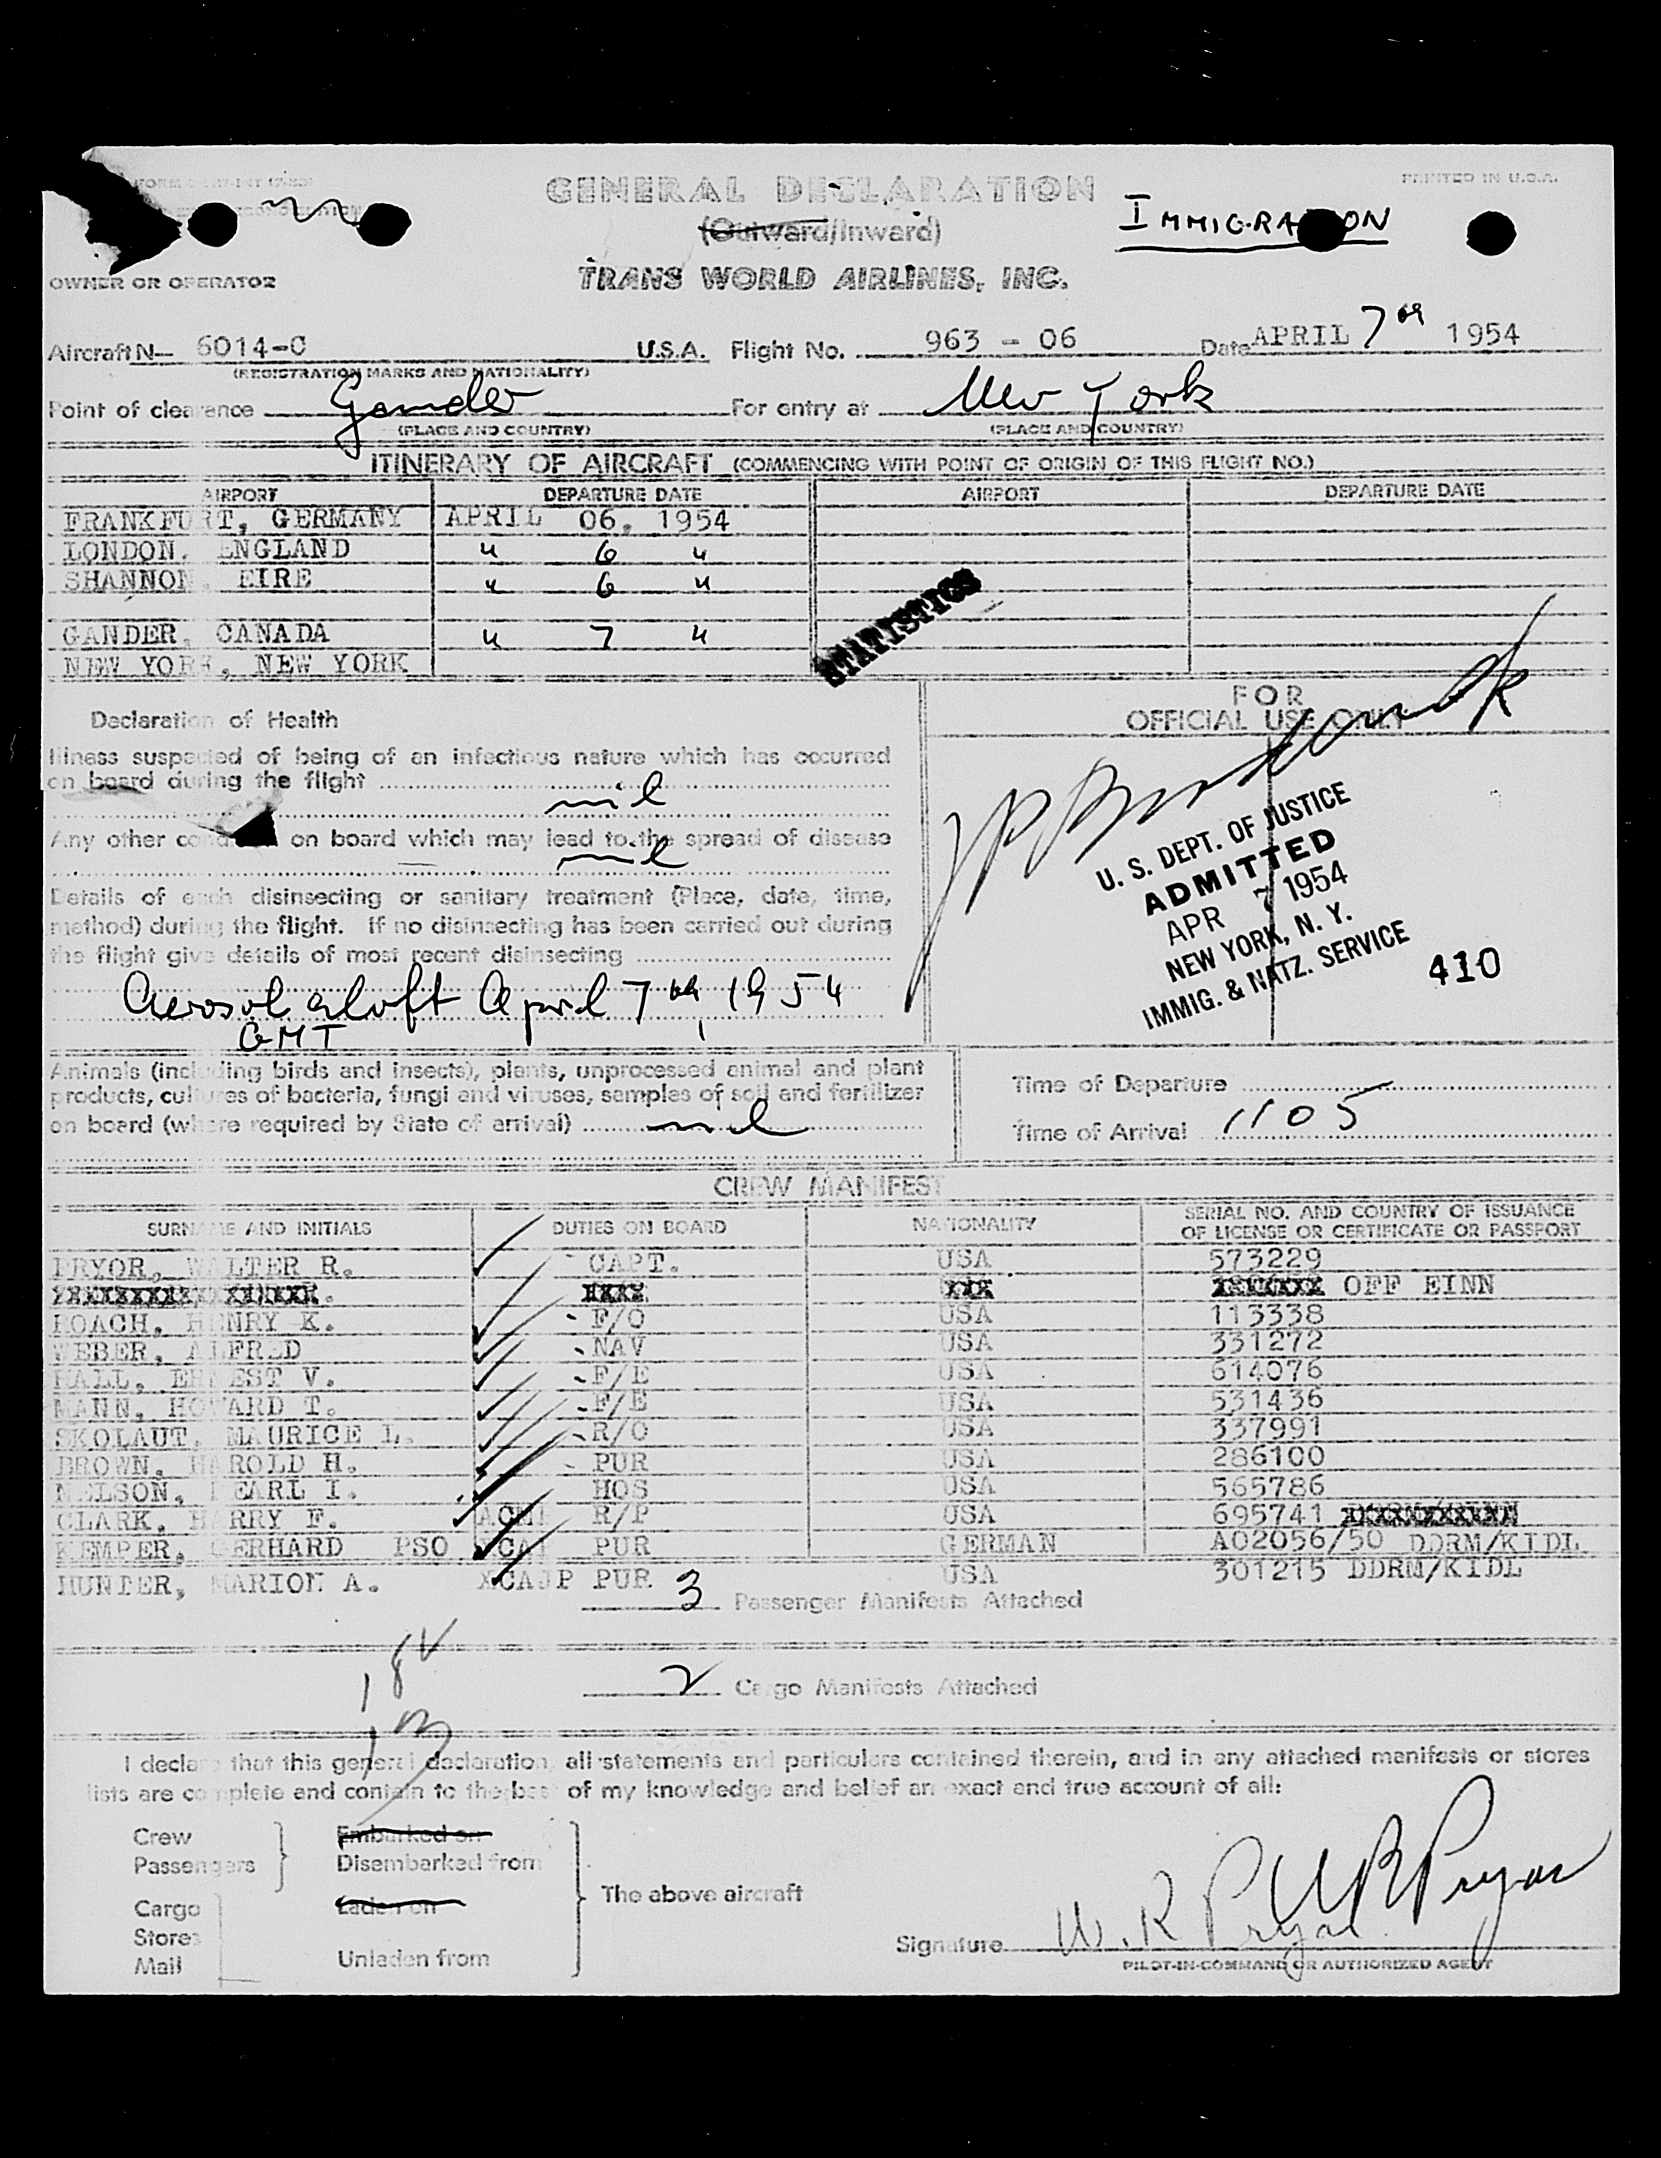 GENERAL DECLARATION
PRINTED IN U.S.A.
(Outward/Inward)
IMMIGRATION
OWNER OR OPERATOR
TRANS WORLD AIRLINES, INC.
Aircraft N— 6014-C U.S.A. Flight No. 963 - 06 Date APRIL 7th 1954
(REGISTRATION MARKS AND NATIONALITY)
Point of clearance Gander For entry at New York
(PLACE AND COUNTRY) (PLACE AND COUNTRY)
ITINERARY OF AIRCRAFT (COMMENCING WITH POINT OF ORIGIN OF THIS FLIGHT NO.)
AIRPORT DEPARTURE DATE AIRPORT DEPARTURE DATE
FRANKFURT, GERMANY APRIL 06, 1954
LONDON, ENGLAND " 6 "
SHANNON, EIRE " 6 "
GANDER, CANADA " 7 "
NEW YORK, NEW YORK
STATISTICS
FOR
OFFICIAL USE ONLY
Declaration of Health
Illness suspected of being of an infectious nature which has occurred
on board during the flight
nil
Any other condition on board which may lead to the spread of disease
nil
Details of each disinsecting or sanitary treatment (Place, date, time,
method) during the flight. If no disinsecting has been carried out during
the flight give details of most recent disinsecting
Aerosol aloft April 7th, 1954
GMT
U. S. DEPT. OF JUSTICE
ADMITTED
APR 7 1954
NEW YORK, N. Y.
IMMIG. & NATZ. SERVICE
410
Animals (including birds and insects), plants, unprocessed animal and plant
products, cultures of bacteria, fungi and viruses, samples of soil and fertilizer
on board (where required by State of arrival) nil
Time of Departure
Time of Arrival 1105
CREW MANIFEST
SURNAME AND INITIALS DUTIES ON BOARD NATIONALITY SERIAL NO. AND COUNTRY OF ISSUANCE
OF LICENSE OR CERTIFICATE OR PASSPORT
PRYOR, WALTER R. CAPT. USA 573229
OFF EINN
ROACH, HENRY K. F/O USA 113338
WEBER, ALFRED NAV USA 331272
HALL, ERNEST V. F/E USA 614076
MANN, HOWARD T. F/E USA 531436
SKOLAUT, MAURICE L. R/O USA 337991
BROWN, HAROLD H. PUR USA 286100
NELSON, PEARL I. HOS USA 565786
CLARK, HARRY F. ACM R/P USA 695741
KEMPER, GERHARD PSO XCAM PUR GERMAN A02056/50 DDRM/KIDL
HUNTER, MARION A. XCAJP PUR USA 301215 DDRM/KIDL
3 Passenger Manifests Attached
18
2 Cargo Manifests Attached
13
I declare that this general declaration, all statements and particulars contained therein, and in any attached manifests or stores
lists are complete and contain to the best of my knowledge and belief an exact and true account of all:
Crew
Passengers
Embarked on
Disembarked from
Cargo
Stores
Mail
Laden on
Unladen from
The above aircraft
Signature W. R. Pryor W R Pryor
PILOT-IN-COMMAND OR AUTHORIZED AGENT